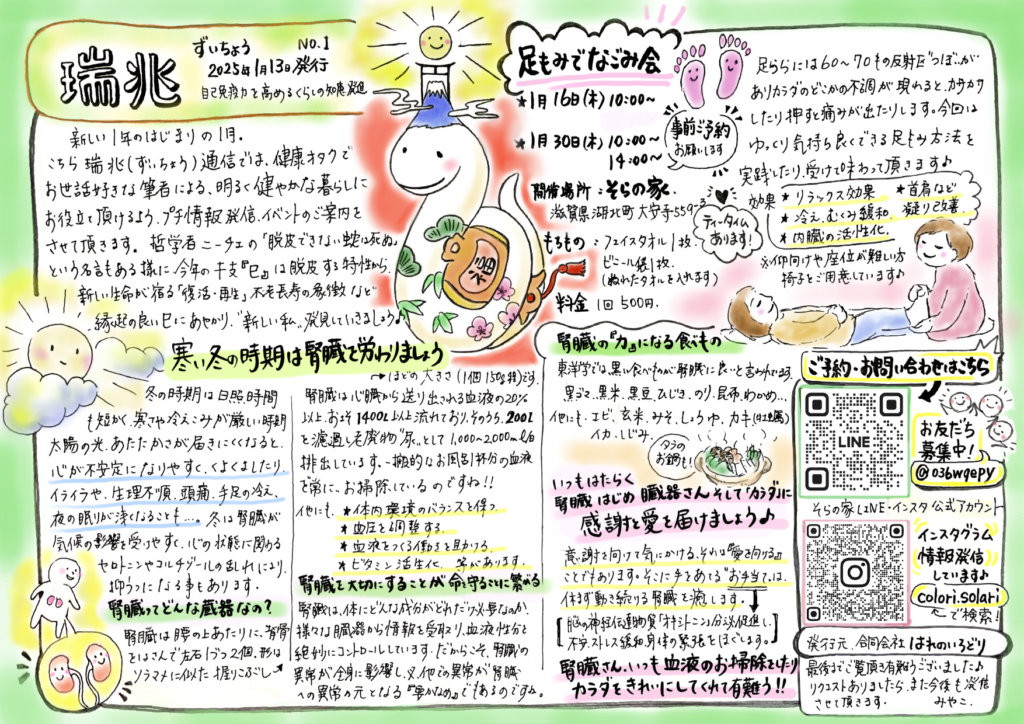 瑞兆
ずいちょう
NO.1
2025年1月13日発行
自己免疫力を高めるくらしの知恵発進
新しい1年のはじまりの1月。
こちら瑞兆(ずいちょう)通信では、健康オタクで
お世話好きな筆者による、明るく健やかな暮らしに
お役立て頂けるよう、プチ情報発信、イベントのご案内を
させて頂きます。哲学者ニーチェの「脱皮できない蛇は死ぬ」
という名言もある様に、今年の干支『巳』は脱皮する特性から、
新しい生命が宿る「復活・再生」不老長寿の象徴など
縁起の良い巳にあやかり、"新しい私"発見していきましょう♪
足もみでなごみ会
★1月16日(木) 10:00〜
★1月30日(木) 10:00〜
14:00〜
事前ご予約
お願いします
開催場所:そらの家
滋賀県湖北町大安寺559-3
もちもの:フェイスタオル1枚、
ビニール袋1枚
(ぬれたタオルを入れます)
料金 1回500円
ティータイム
あります!
足うらには60〜70もの反射区"つぼ"が
ありカラダのどこかの不調が現れると、カサカサ
したり押すと痛みが出たりします。今回は
ゆっくり気持ち良くできる足もみ方法を
実践したり、受けて味わって頂けます♪
効果
★リラックス効果
★首肩など
凝り改善
★冷え、むくみ緩和
★内臓の活性化
※仰向けや座位が難しい方
椅子をご用意しています♪
寒い冬の時期は腎臓を労わりましょう
冬の時期は日照時間
も短かく、寒さや冷えこみが厳しい時期
太陽の光、あたたかさが届きにくくなると、
心が不安定になりやすく、くよくよしたり、
イライラや、生理不順、頭痛、手足の冷え、
夜の眠りが浅くなることも…。冬は腎臓が
気候の影響を受けやすく、心の状態に関わる
セロトニンやコルチゾールの乱れにより、
抑うつになる事もあります。
腎臓ってどんな臓器なの?
腎臓は腰の上あたりに、背骨
をはさんで左右1つづつ2個、形は
ソラマメに似た握りこぶし→
→ほどの大きさ(1個150g程)です。
腎臓は心臓から送り出される血液の20%
以上、およそ1400L以上流れており、そのうち、200L
を濾過し老廃物"尿"として1,000〜2,000mL/日
排出しています。一般的なお風呂1杯分の血液
を常に、お掃除しているのですね!!
他にも、★体内環境のバランスを保つ。
★血圧を調整する。
★血液をつくる働きを助ける。
★ビタミン活性化 等があります。
腎臓を大切にすることが命を守ることに繋がる
腎臓は、体にどんな成分がどれだけ必要なのか、
様々な臓器から情報を受取り、血液性分を
絶妙にコントロールしています。だからこそ、腎臓の
異常が全身に影響し、又、他での異常が腎臓
への異常の元となる『要かなめ』でもあるのですね。
腎臓の『力』になる食べもの
東洋学では黒い食べものが腎臓に良いと言われてます。
黒ごま、黒米、黒豆、ひじき、のり、昆布、わかめ…
他にも、エビ、玄米、みそ、しょうゆ、カキ(牡蠣)
イカ、しじみ、
タラの
お鍋も!
いつもはたらく
腎臓はじめ臓器さんそして「カラダ」に
感謝と愛を届けましょう♪
感謝を向けて気にかける、それは『愛を向ける』
ことでありますね。そこに手をあてる"お手当て"は、
休まず動き続ける腎臓を癒します。
脳の神経伝達物質「オキシトニン」分泌促進し、
不安、ストレス緩和、身体の緊張をほぐします。
腎臓さん、いつも血液のお掃除をしたり
カラダをきれいにしてくれて有難う!!
ご予約・お問い合わせはこちら
LINE
お友だち
募集中!
@036wqepy
そらの家 LINE・インスタ 公式アカウント
インスタグラム
情報発信
しています♪
colori.solari
で検索!
発行元 合同会社 はれのいろどり
最後までご覧頂き有難うございました♪
リクエストありましたら、また今後も発信
させて頂きます。 みやこ